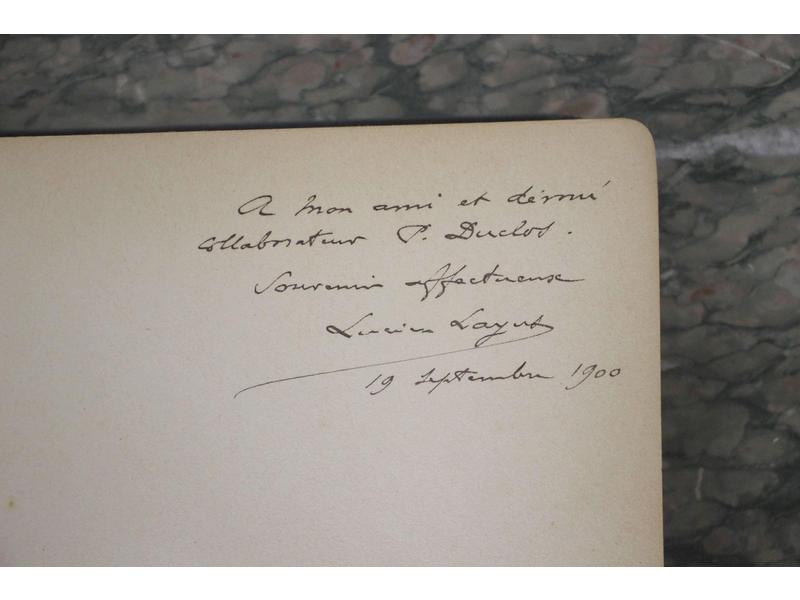 A mon ami et dévoué
collaborateur P. Duclos.
Souvenir affectueux
Lucien Layus
19 septembre 1900